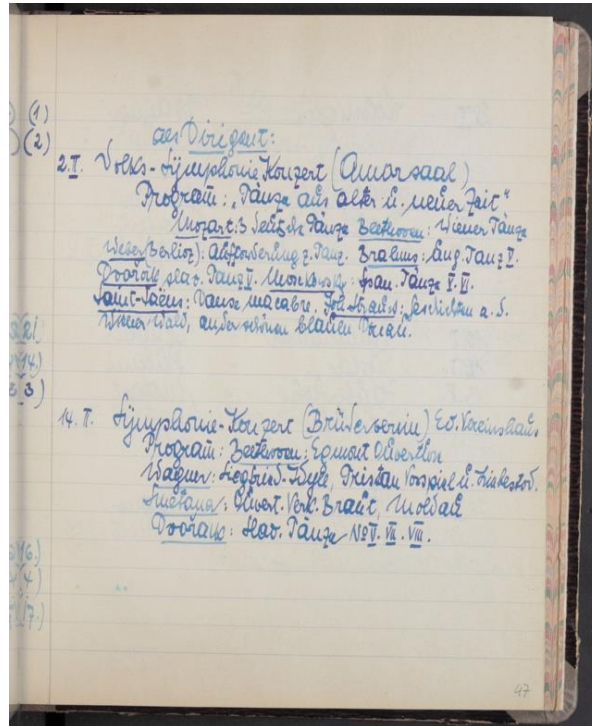 (1)
(2)
als Dirigent:
2.II. Volks-Symphonie Konzert (Amorsaal)
Program: "Tänze aus alter u. neuer Zeit"
Mozart: 3 deutsche Tänze Beethoven: Wiener Tänze
Weber (Berlioz): Aufforderung z. Tanz. Brahms: Ung. Tanz V.
Dvořák slav. Tanz V. Moszkowsky: span. Tänze V. VI.
Saint-Saens: Danse macabre. Joh. Strauss: Geschichten a. d.
Wiener Wald, an der schönen blauen Donau.
21.
14)
3)
14. II. Symphonie-Konzert (Brüderverein) Ev. Vereinshaus
Program: Beethoven: Egmont Ouverture
Wagner: Siegfried-Idyll, Tristan Vorspiel u. Liebestod.
Smetana: Ouvert. Verk. Braut, Moldau
Dvořak: slav. Tänze No V. VII. VIII.
16.)
(4)
17.)
47